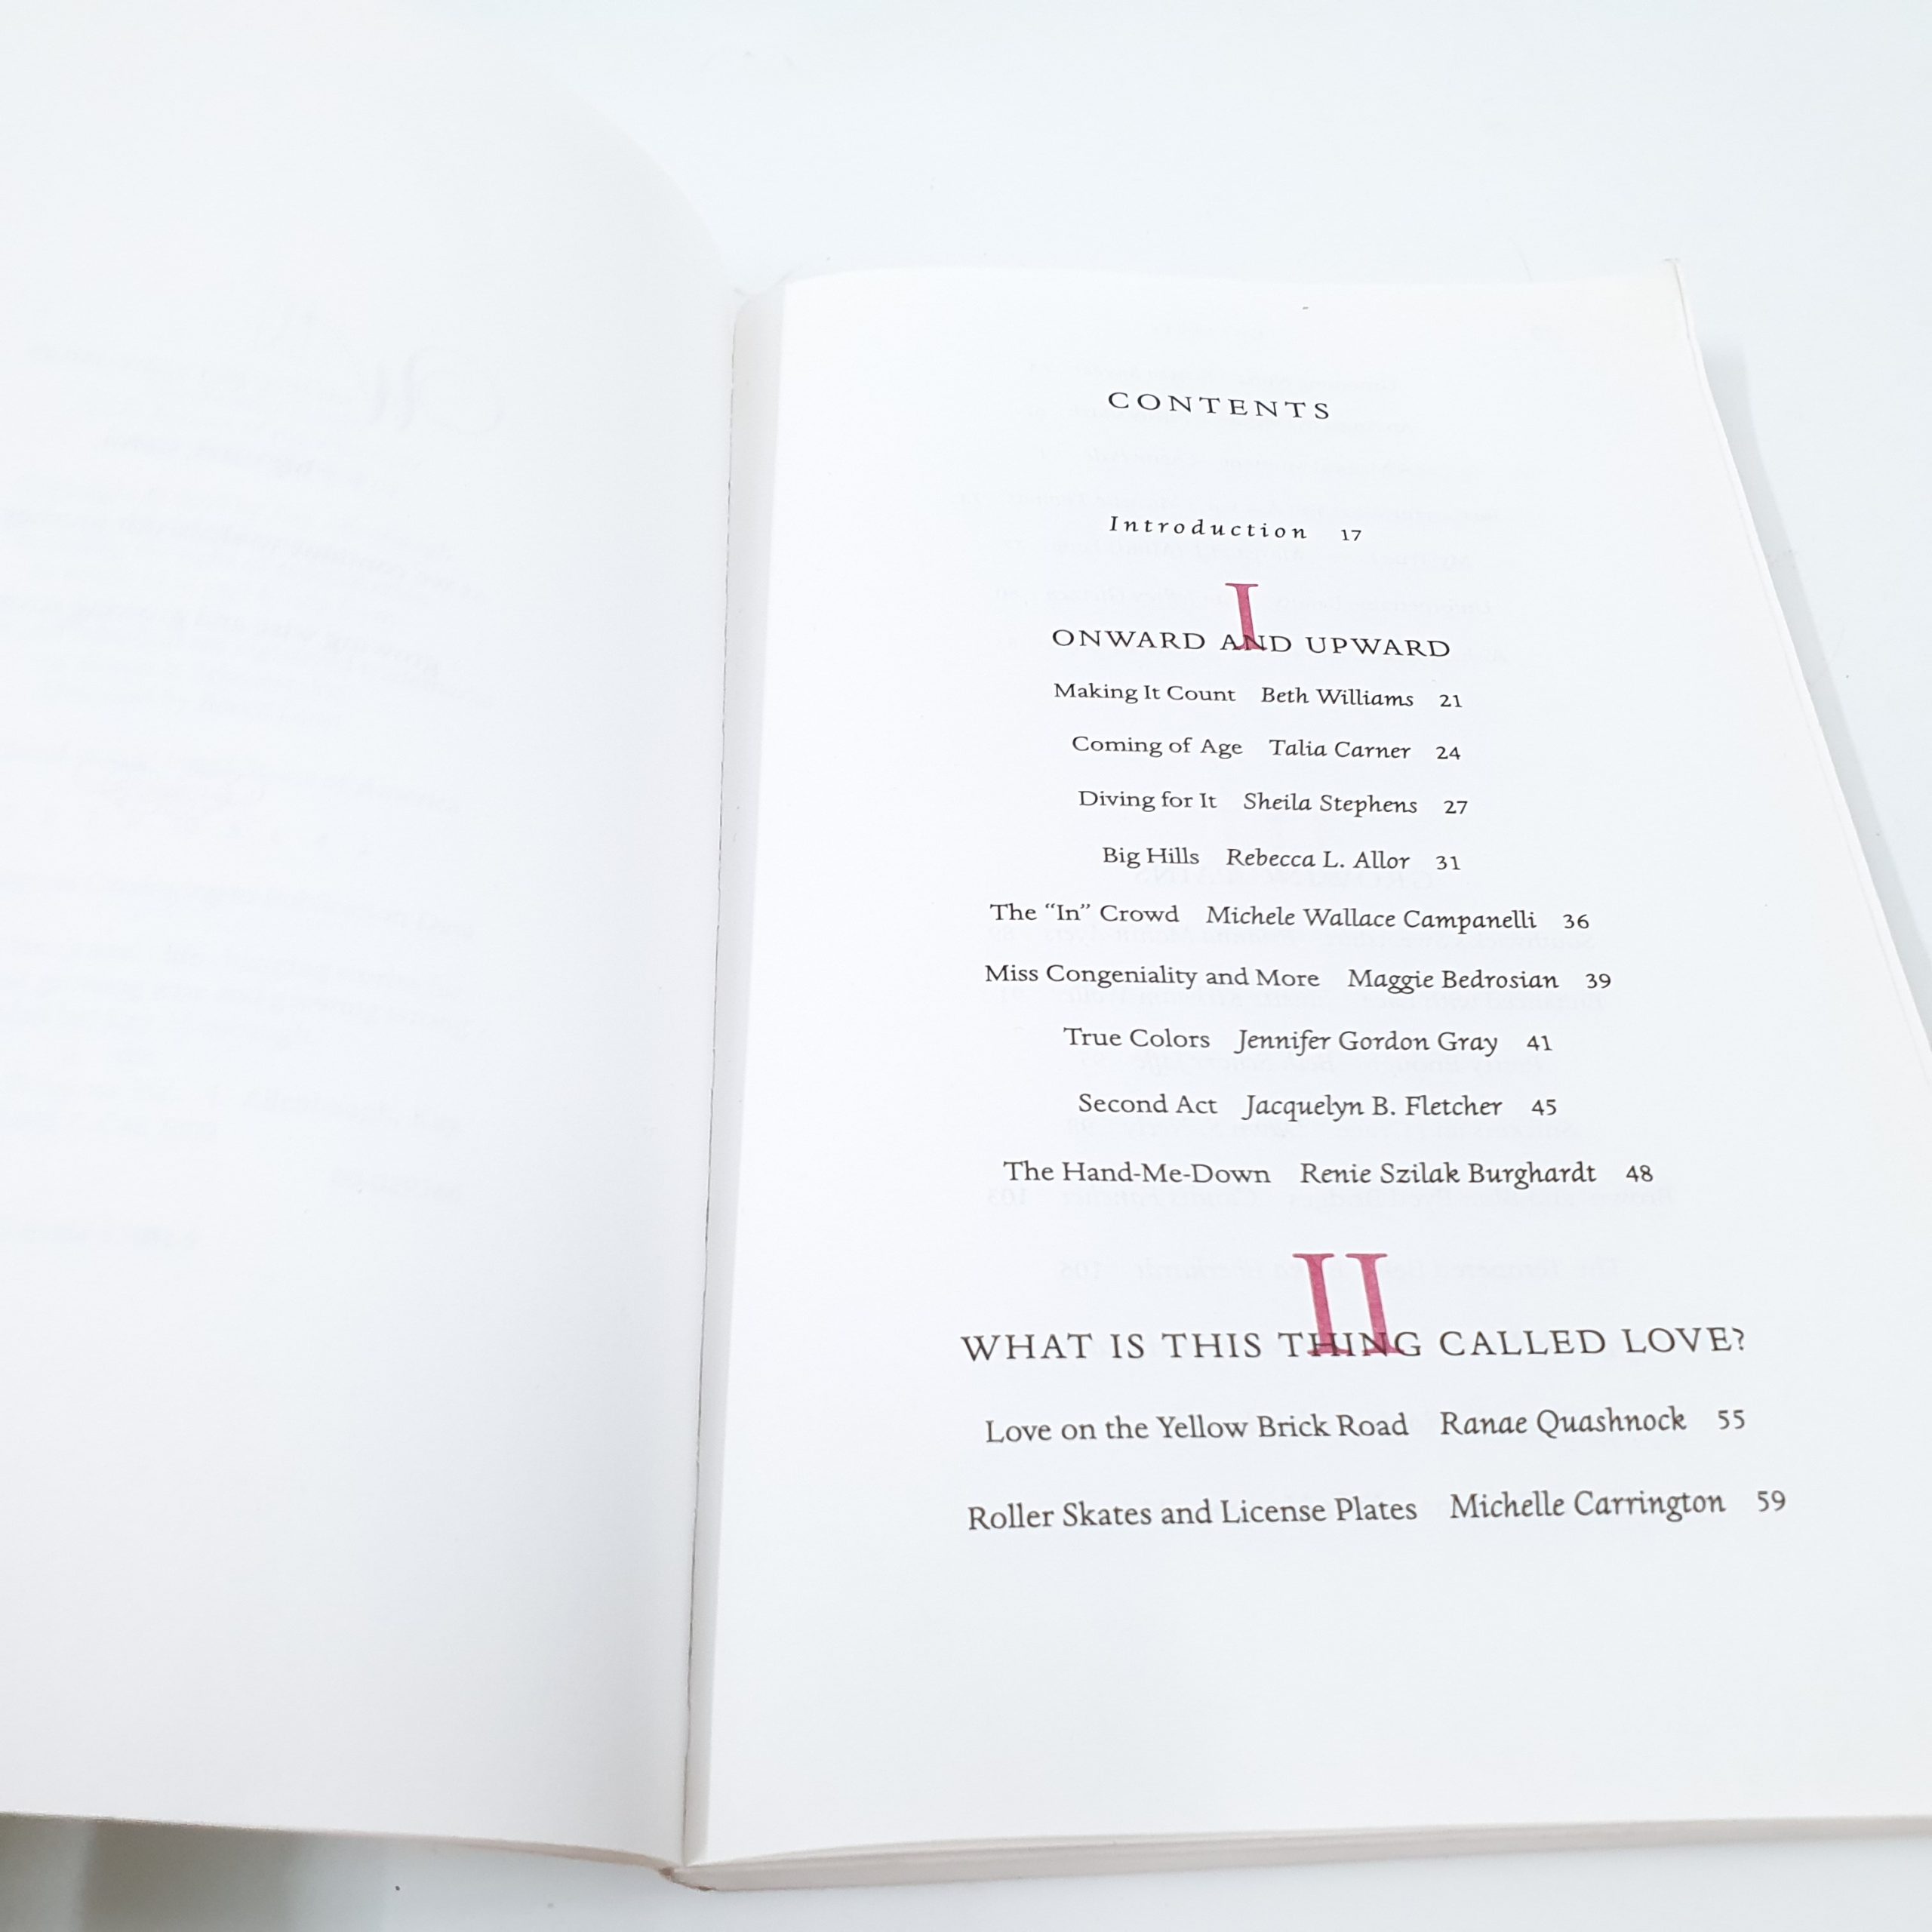 CONTENTS
Introduction 17
I
ONWARD AND UPWARD
Making It Count Beth Williams 21
Coming of Age Talia Carner 24
Diving for It Sheila Stephens 27
Big Hills Rebecca L. Allor 31
The “In” Crowd Michele Wallace Campanelli 36
Miss Congeniality and More Maggie Bedrosian 39
True Colors Jennifer Gordon Gray 41
Second Act Jacquelyn B. Fletcher 45
The Hand-Me-Down Renie Szilak Burghardt 48
II
WHAT IS THIS THING CALLED LOVE?
Love on the Yellow Brick Road Ranae Quashnock 55
Roller Skates and License Plates Michelle Carrington 59